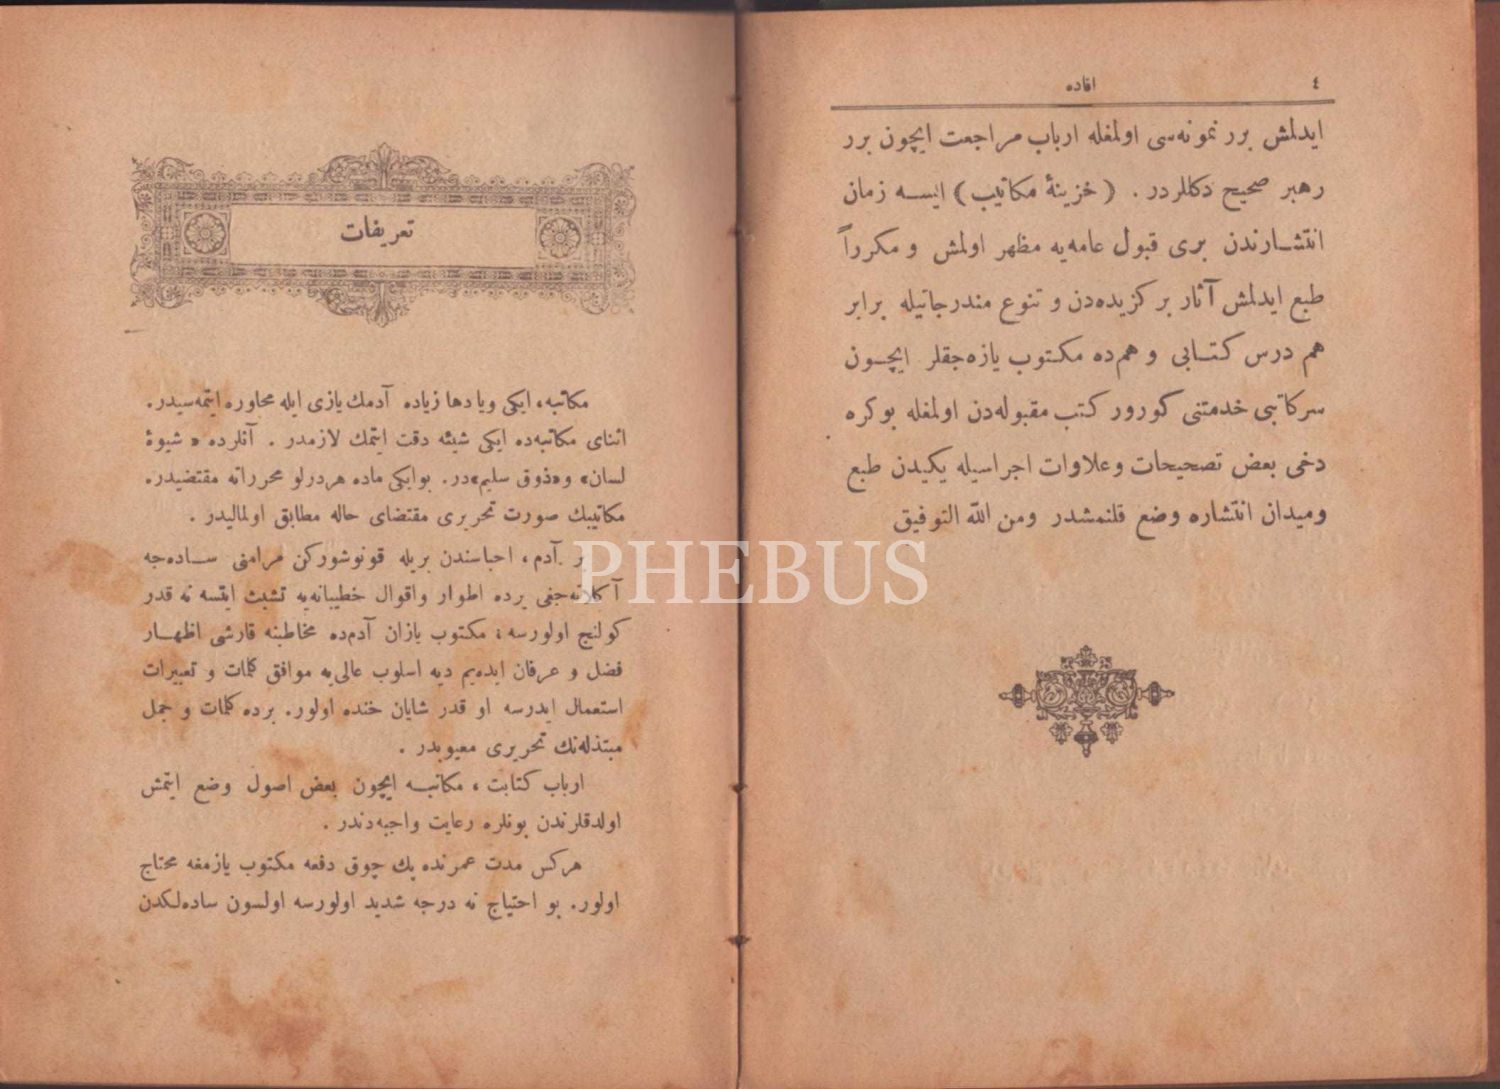 ٤
افاده
ایدلمش برر نمونه‌سی اولمغله ارباب مراجعت ایچون برر
رهبر صحیح دكللردر . ( خزینهٔ مكاتیب ) ایسه زمان
انتشارندن بری قبول عامه‌یه مظهر اولمش و مكرراً
طبع ایدلمش آثار بركزیده‌دن و تنوع مندرجاتیله برابر
هم درس كتابی و هم‌ده مكتوب یازه‌جقلر ایچون
سركاتبی خدمتنی كورور كتب مقبوله‌دن اولمغله بوكره
دخی بعض تصحیحات وعلاوات اجراسیله یكیدن طبع
ومیدان انتشاره وضع قلنمشدر ومن الله التوفیق
تعریفات
مكاتبه، ایكی ویا دها زیاده آدمك یازی ایله محاوره ایتمه‌سیدر.
اثنای مكاتبه‌ده ایكی شیئه دقت ایتمك لازمدر . آنلرده « شیوهٔ
لسان» و«ذوق سلیم»در. بوایكی ماده هردرلو محرراته مقتضیدر.
مكاتیبك صورت تحریری مقتضای حاله مطابق اولمالیدر .
بر آدم، احباسندن بریله قونوشوركن مرامنی ساده‌جه
آكلاته‌جغی یرده اطوار واقوال خطیبانه‌یه تشبث ایتسه نه قدر
كولنج اولورسه ؛ مكتوب یازان آدم‌ده مخاطبنه قارشی اظهار
فضل و عرفان ایده‌یم دیه اسلوب عالی‌یه موافق كلمات و تعبیرات
استعمال ایدرسه او قدر شایان خنده اولور. برده كلمات و جمل
مبتذله‌نك تحریری معیوبدر .
ارباب كتابت ، مكاتبه ایچون بعض اصول وضع ایتمش
اولدقلرندن بونلره رعایت واجبه‌دندر .
هركس مدت عمرنده پك چوق دفعه مكتوب یازمغه محتاج
اولور. بو احتیاج نه درجه شدید اولورسه اولسون ساده‌لكدن
PHEBUS